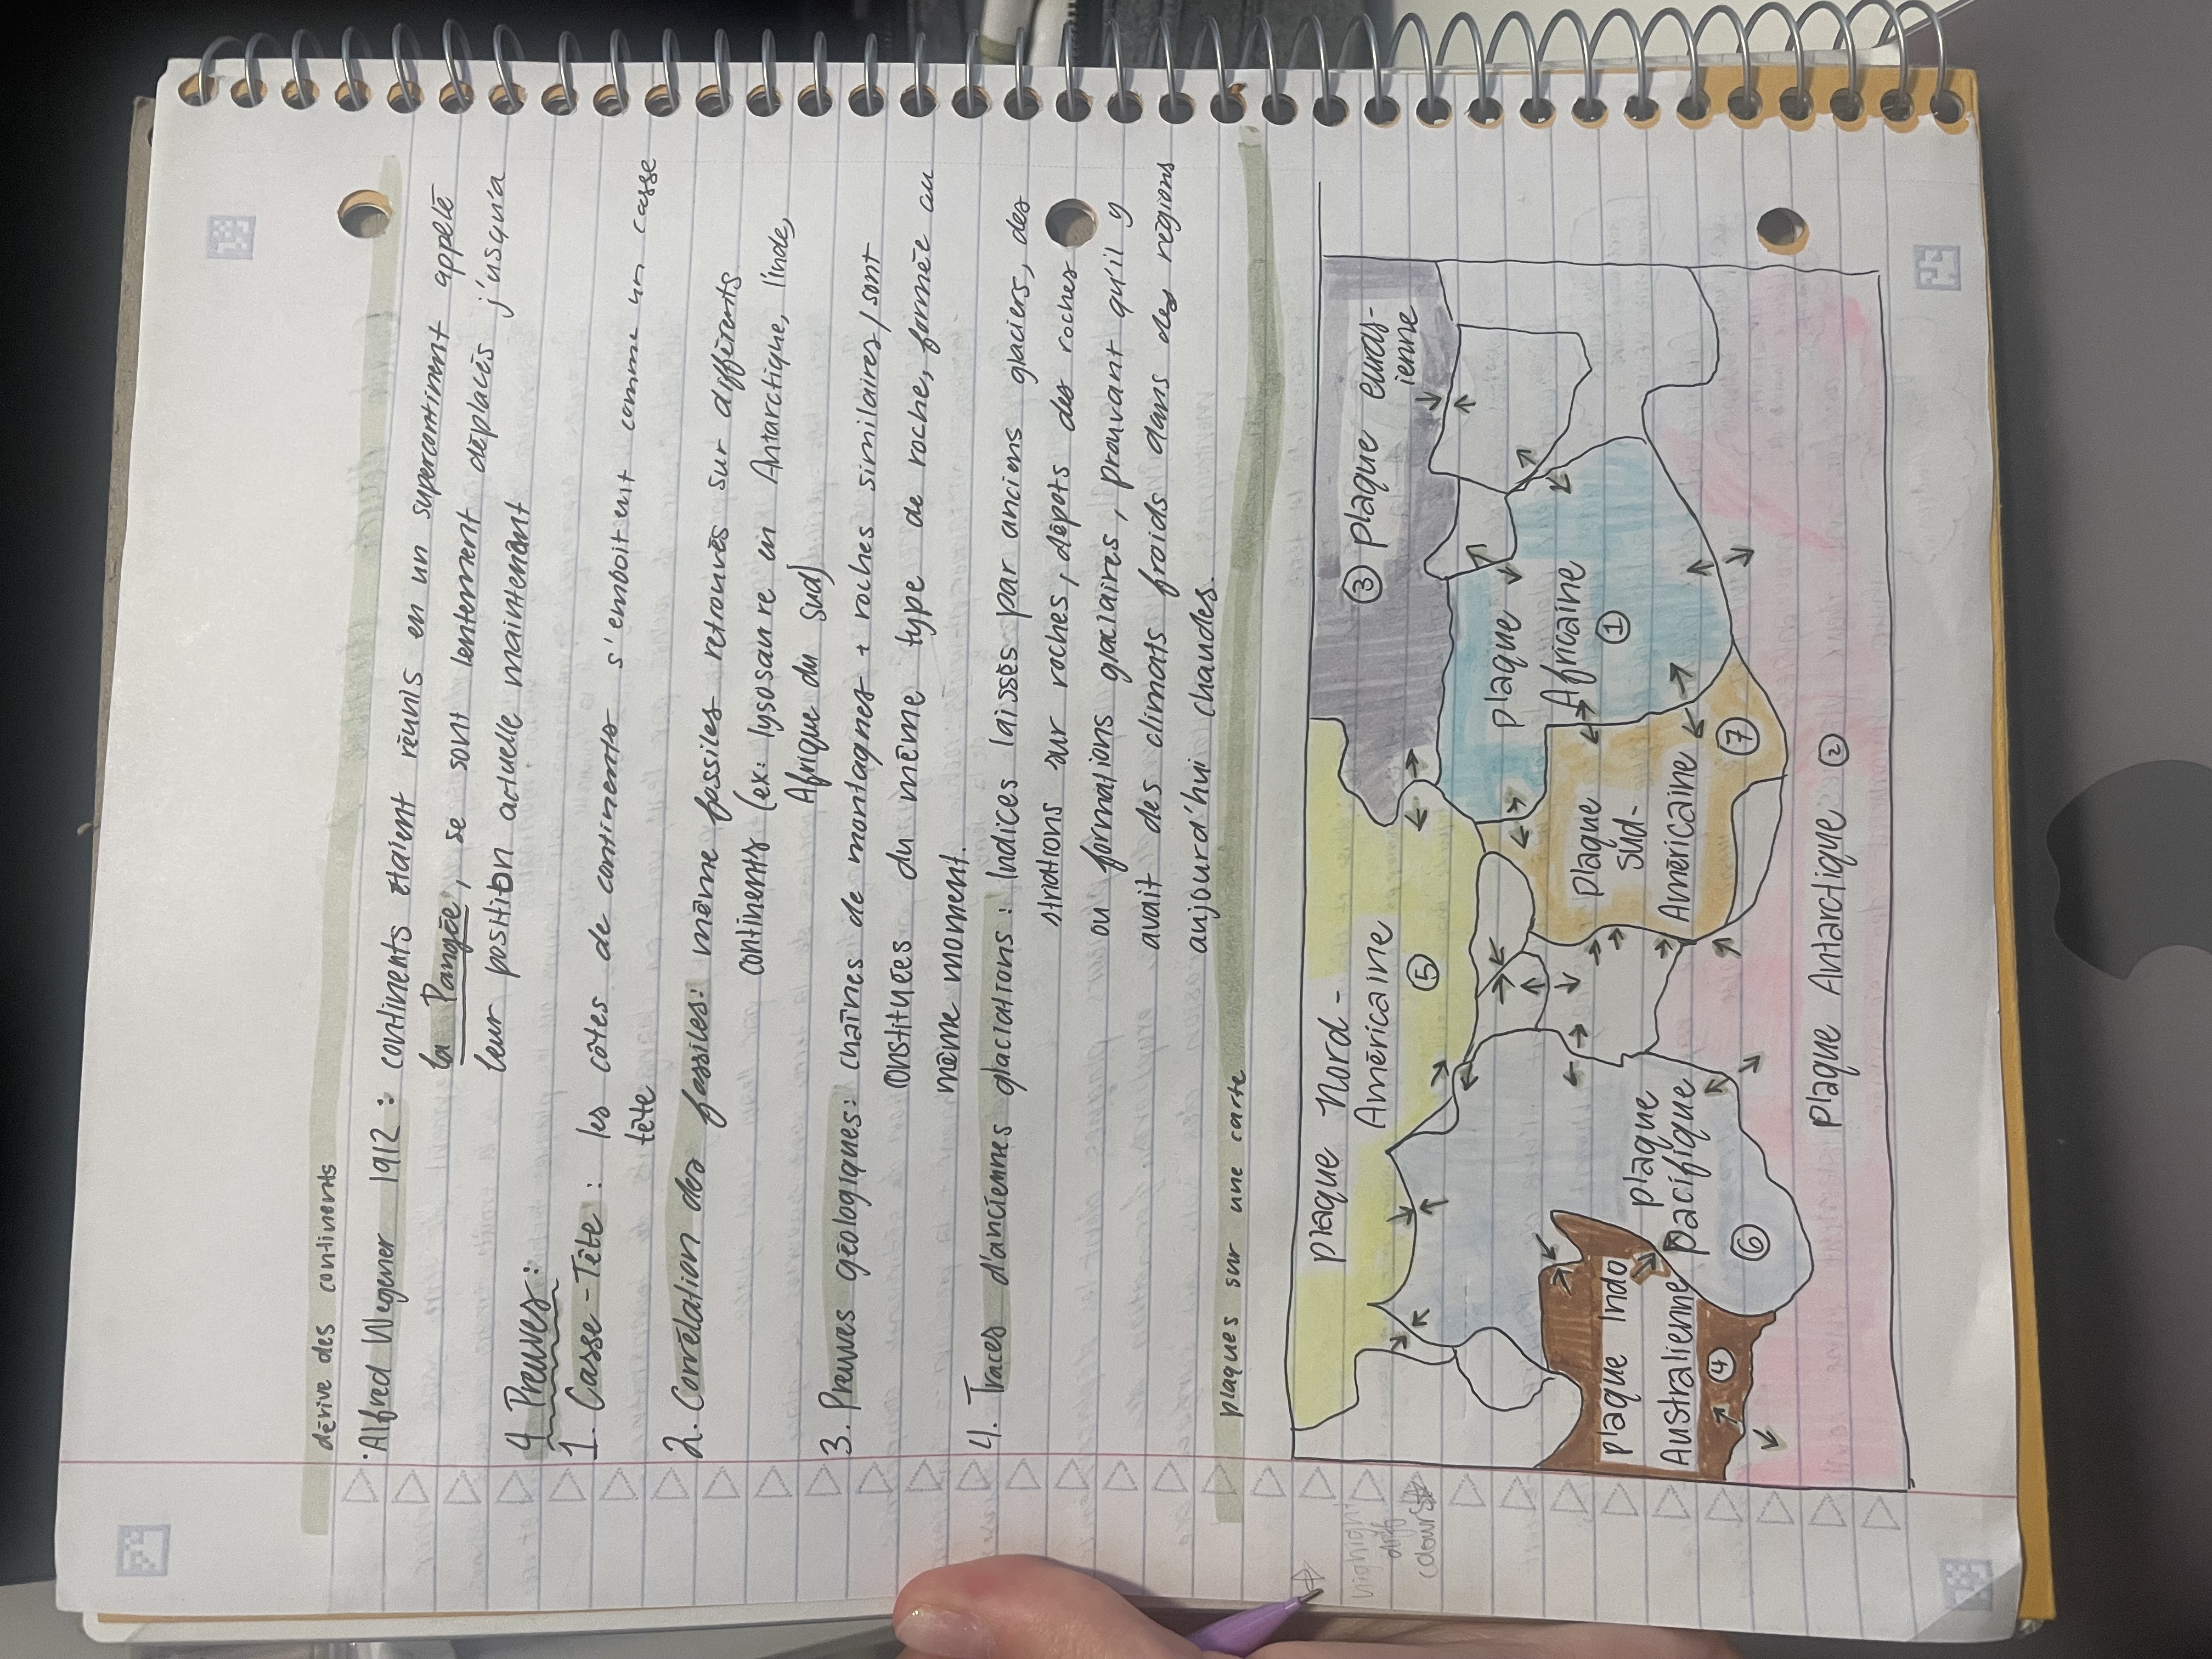 dérive des continents
·Alfred Wegener 1912 : continents étaient réunis en un supercontinent appelé
la Pangée, se sont lentement déplacés j'usqu'a
leur position actuelle maintenant
4 Preuves:
1. Casse-Tête : les côtes de continents s'emboitent comme un casse
tête
2. Corrélation des fossiles: même fossiles retrouvés sur différents
continents (ex: lysosaure en Antarctique, l'inde,
Afrique du Sud)
3. Preuves géologiques: chaînes de montagnes + roches similaires/sont
constituées du même type de roche, formée au
même moment.
4. Traces d'anciennes glaciations : Indices laissés par anciens glaciers, des
striations sur roches, dépots des roches
ou formations glaciaires, prouvant qu'il y
avait des climats froids dans des régions
aujourd'hui chaudes.
plaques sur une carte
highlight
diff
colours
plaque Nord-
Américaine
5
3 plaque euras-
ienne
plaque
Africaine
1
Plaque
Sud-
Américaine
7
plaque
pacifique
6
plaque Indo
Australienne
4
Plaque Antarctique 2